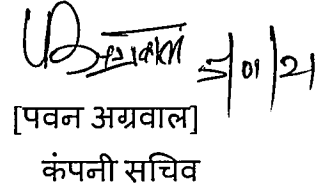 5/01/21
[पवन अग्रवाल]
कंपनी सचिव